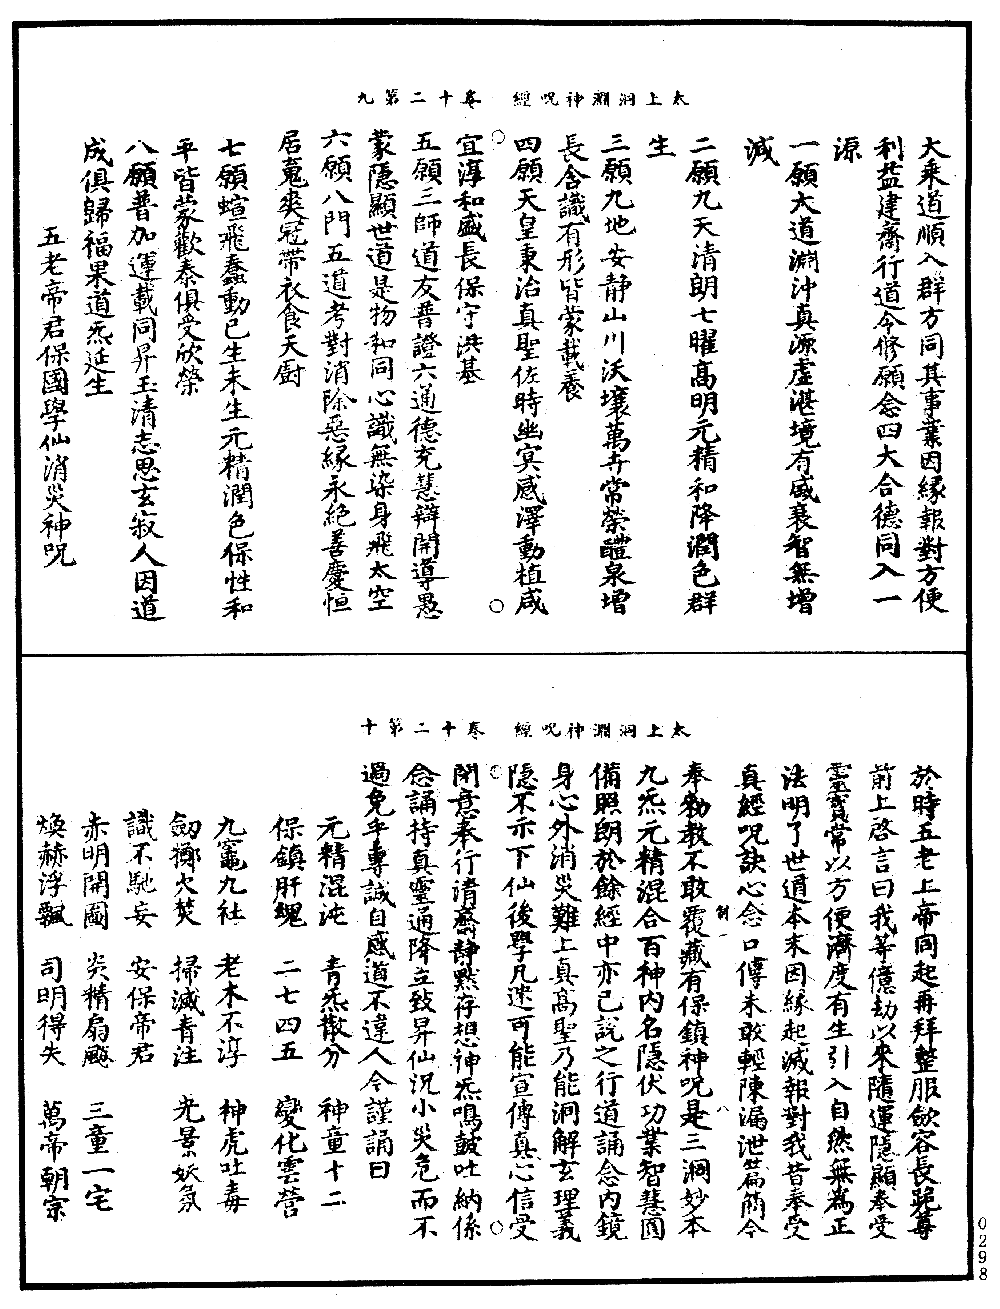 太上洞淵神呪經　卷十二第九
大乘道順入群方同其事業因緣報對方便
利益建齋行道令修願念四大合德同入一
源
一願大道淵沖真源虛湛境有盛衰智無增
減
二願九天清朗七曜高明元精和降潤色群
生
三願九地安靜山川沃壤萬卉常榮醴泉增
長含識有形皆蒙載養
四願天皇東治真聖佐時幽冥感澤動植咸
宜淳和盛長保守洪基
五願三師道友普證六通德充慧辯開導愚
蒙隱顯世道是物和同心識無染身飛太空
六願八門五道考對消除惡緣永絕善慶恒
居蒐爽冠帶衣食天廚
七願蝖飛蠢動已生未生元精潤色保性和
平皆蒙歡泰俱受欣榮
八願普加運載同昇玉清志思玄寂人因道
成俱歸福果道炁延生
五老帝君保國學仙消災神呪
太上洞淵神呪經　卷十二第十
於時五老上帝同起再拜整服歛容長跪尊
前上啓言曰我等億劫以來隨運隱顯奉受
靈寶常以方便濟度有生引入自然無為正
法明了世道本末因緣起滅報對我昔奉受
真經呪訣心念口傳未敢輕陳漏泄篇簡今
奉勑教不敢覆藏有保鎮神呪是三洞妙本
九炁元精混合百神內名隱伏功業智慧圓
備照朗於餘經中亦已說之行道誦念內鏡
身心外消災難上真高聖乃能洞解玄理義
隱不示下仙後學凡迷可能宣傳真心信受
閉意奉行清齋靜默存想神炁鳴鼓吐納係
念誦持真靈通降立致昇仙況小災危而不
過免乎專誠自感道不違人今謹誦曰
元精混沌　青炁散分　神童十二
保鎮肝䰟　二七四五　變化雲營
九竈九社　老木不淳　神虎吐毒
劒擲火焚　掃滅青注　光景妖氛
識不馳妄　安保帝君
赤明開圖　炎精扇飈　三童一宅
煥赫浮飄　司明得失　萬帝朝宗
0298